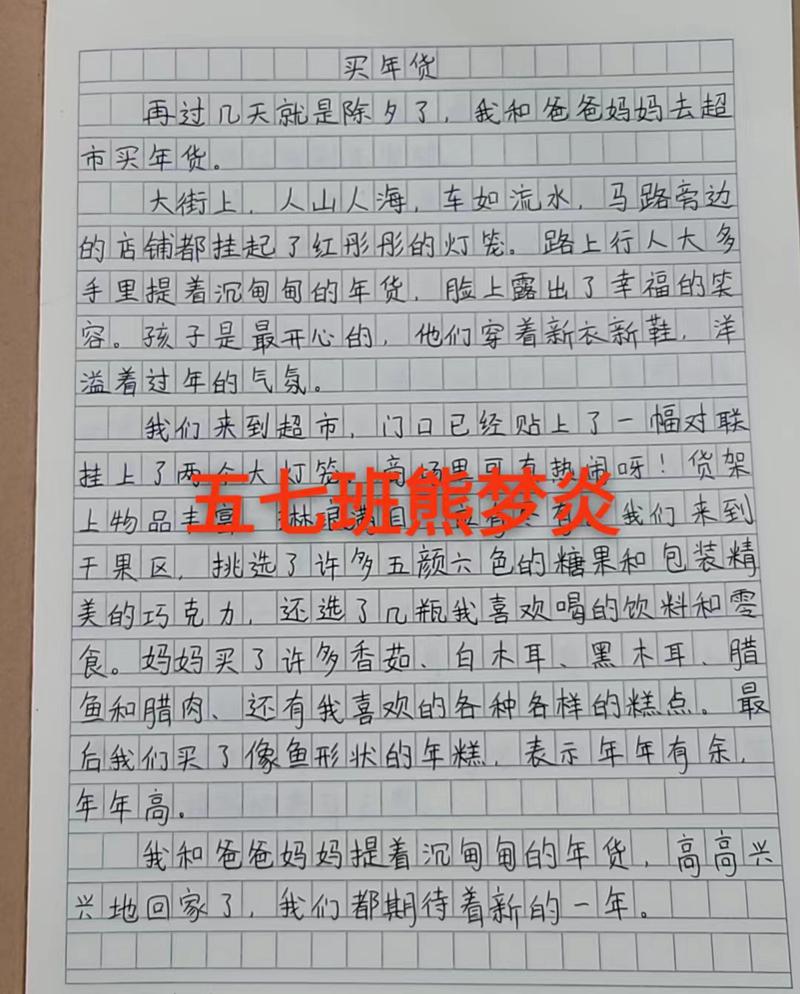 买年货
再过几天就是除夕了，我和爸爸妈妈去超
市买年货。
大街上，人山人海，车如流水，马路旁边
的店铺都挂起了红彤彤的灯笼。路上行人大多
手里提着沉甸甸的年货，脸上露出了幸福的笑
容。孩子是最开心的，他们穿着新衣新鞋，洋
溢着过年的气氛。
我们来到超市，门口已经贴上了一幅对联
挂上了两个大灯笼，商场里可有热闹呀！货架
五七班熊梦炎
上物品丰富 满目 我们来到
干果区，挑选了许多五颜六色的糖果和包装精
美的巧克力，还选了几瓶我喜欢喝的饮料和零
食。妈妈买了许多香茹、白木耳、黑木耳、腊
鱼和腊肉、还有我喜欢的各种各样的糕点。最
后我们买了像鱼形状的年糕，表示年年有余，
年年高。
我和爸爸妈妈提着沉甸甸的年货，高高兴
兴地回家了，我们都期待着新的一年。